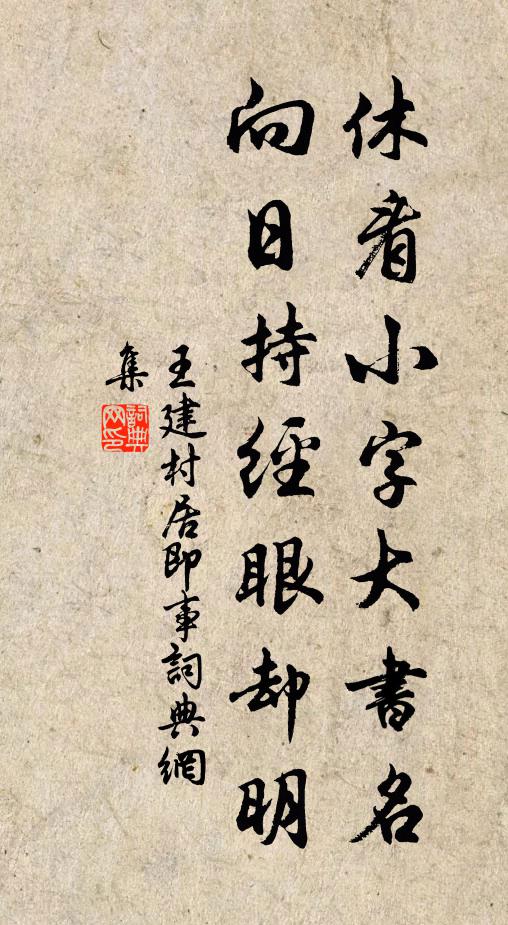 休看小字大書名
向日持經眼却明
王建村居即事詞典網
集
詞典
网印